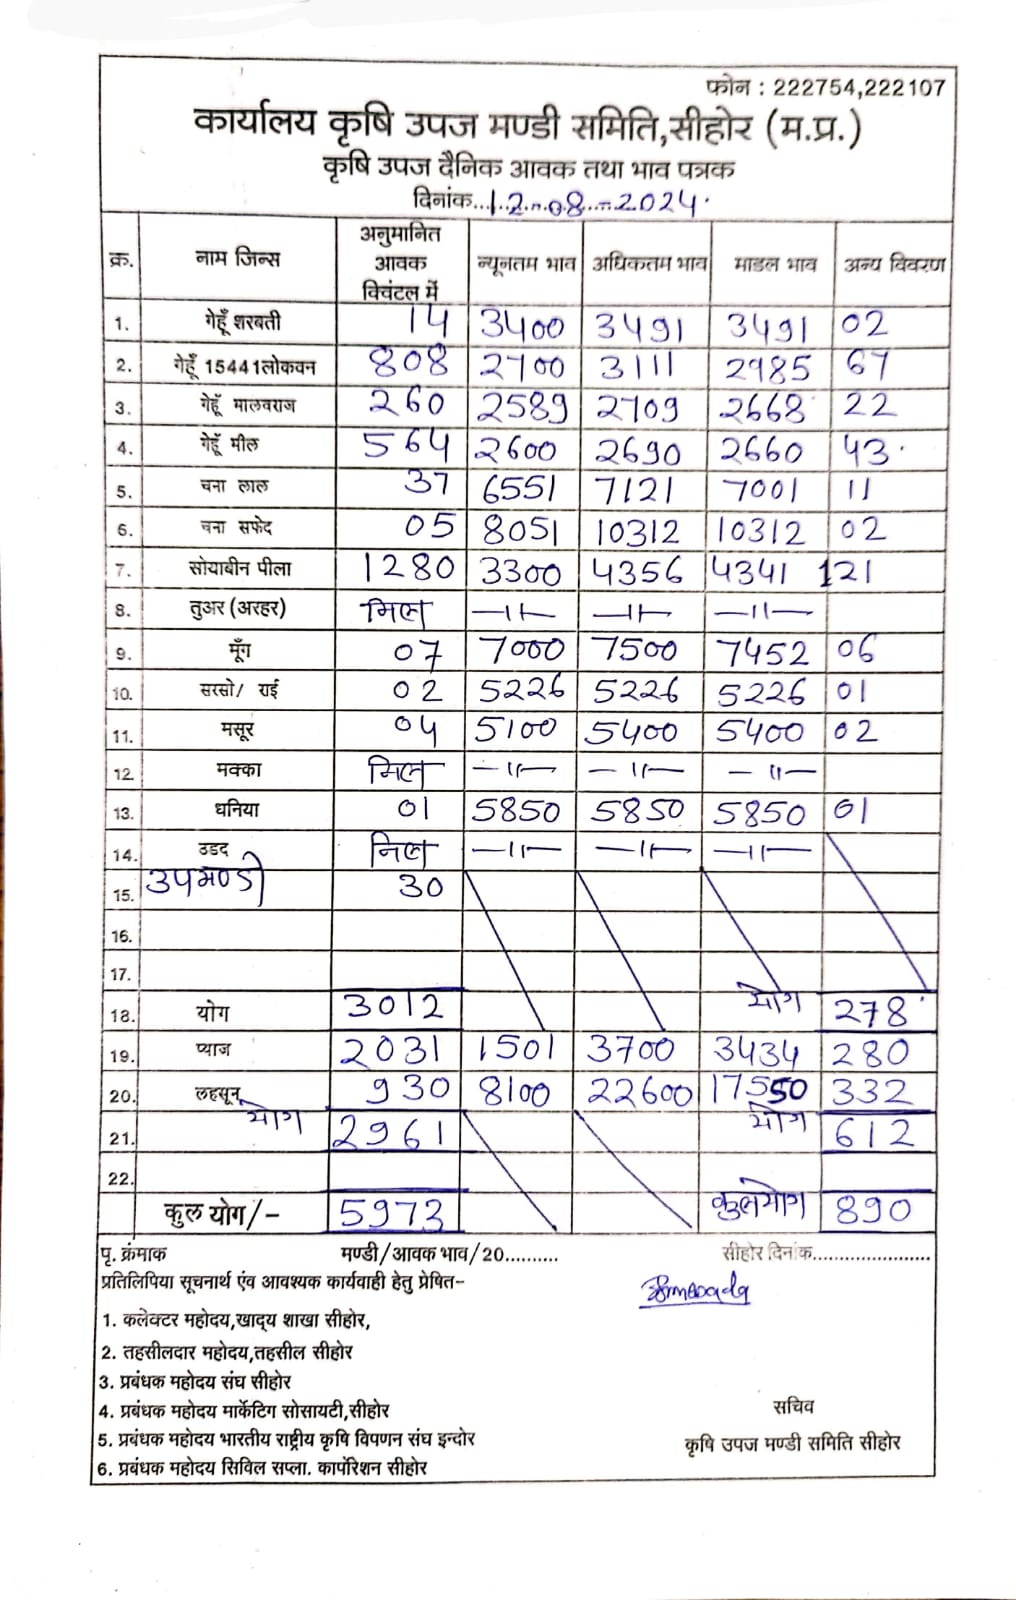 फोन : 222754,222107
कार्यालय कृषि उपज मण्डी समिति,सीहोर (म.प्र.)
कृषि उपज दैनिक आवक तथा भाव पत्रक
दिनांक...12-08-2024.
क्र. नाम जिन्स अनुमानित आवक क्विंटल में न्यूनतम भाव अधिकतम भाव माडल भाव अन्य विवरण
1. गेहूँ शरबती 14 3400 3491 3491 02
2. गेहूँ 15441लोकवन 808 2700 3111 2985 67
3. गेहूँ मालवराज 260 2589 2709 2668 22
4. गेहूँ मील 564 2600 2690 2660 43
5. चना लाल 37 6551 7121 7001 11
6. चना सफेद 05 8051 10312 10312 02
7. सोयाबीन पीला 1280 3300 4356 4341 121
8. तुअर (अरहर) निल —11— —11— —11—
9. मूँग 07 7000 7500 7452 06
10. सरसो/ राई 02 5226 5226 5226 01
11. मसूर 04 5100 5400 5400 02
12. मक्का निल —11— —11— —11—
13. धनिया 01 5850 5850 5850 01
14. उडद निल —11— —11— —11—
15. उपमण्डी 30
16.
17.
18. योग 3012 योग 278
19. प्याज 2031 1501 3700 3434 280
20. लहसून 930 8100 22600 17550 332
21. योग 2961 योग 612
22.
कुल योग/- 5973 कुलयोग 890
पृ. क्रंमाक मण्डी/आवक भाव/20.......... सीहोर दिनांक......................
प्रतिलिपिया सूचनार्थ एंव आवश्यक कार्यवाही हेतु प्रेषित-
1. कलेक्टर महोदय,खाद्य शाखा सीहोर,
2. तहसीलदार महोदय,तहसील सीहोर
3. प्रबंधक महोदय संघ सीहोर
4. प्रबंधक महोदय मार्केटिग सोसायटी,सीहोर
सचिव
5. प्रबंधक महोदय भारतीय राष्ट्रीय कृषि विपणन संघ इन्दोर
कृषि उपज मण्डी समिति सीहोर
6. प्रबंधक महोदय सिविल सप्ला. कार्पोरेशन सीहोर